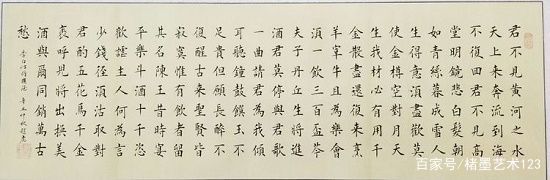 君不見黃河之水
天上來奔流到海
不復回君不見高
堂明鏡悲白髮朝
如青絲暮成雪人
生得意須盡歡莫
使金樽空對月天
生我材必有用千
金散盡還復來烹
羊宰牛且為樂會
須一飲三百盃岑
夫子丹丘生將進
酒君莫停與君歌
一曲請君為我傾
耳聽鐘鼓饌玉不
足貴但願長醉不
復醒古來聖賢皆
寂寞惟有飲者留
其名陳王昔時宴
平樂斗酒十千恣
歡謔主人何為言
少錢徑須沽取對
君酌五花馬千金
裘呼兒將出換美
酒與爾同銷萬古
愁
李白詩將進酒
百家号/楮墨艺术123